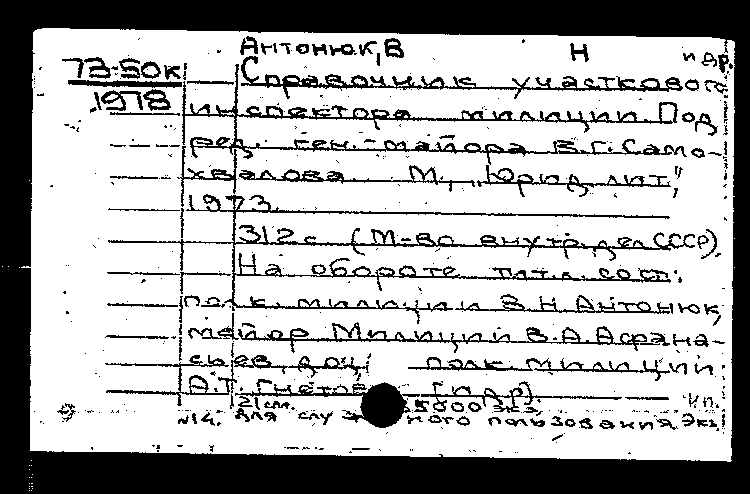 Антонюк, В Н и др.
73-50к Справочник участкового
1978 инспектора милиции. Под
ред. ген.-майора В.Г. Само-
хвалова. М., „Юрид. лит",
1973.
312 с (М-во внутр. дел СССР).
На обороте тит. л. сост.:
полк. милиции В.Н. Антонюк,
майор Милиции В.А. Афана-
сьев, доц. полк. милиции
А.Т. Гнетов [и др].
21 см. 35000 экз.
№14. Для служебного пользования. Экз.